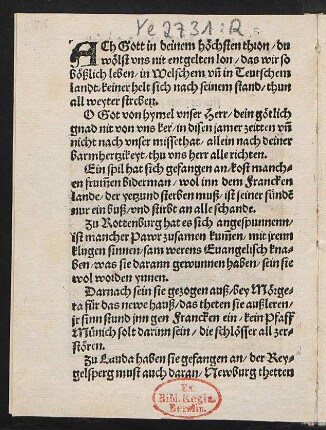 Ye 2731:R
ACh Gott in deinem höchsten thron/du
wölst vns nit entgelten lon/das wir so
bößlich leben/in Welschem vñ in Teutschem
landt/keiner helt sich nach seinem stand/thun
all weyter streben.
O Got von hymel vnser Herr/dein götlich
gnad nit von vns ker/in disen jamer zeitten vñ
nicht nach vnser missethat/allein nach deiner
barmhertzikeyt/thu vns herr alle richten.
Ein spil hat sich gefangen an/kost manch-
en frum̃en biderman/wol inn dem Francken
lande/der yetzund sterben muß/ist seiner sünde
nur ein buß/vnd stirbt an alle schande.
Zu Rottenburg hat es sich angespunnenn/
ist mancher Pawr zusamen kum̃en/mit jrem
klingen sinnen/sam werens Euangelisch kna-
ben/was sie darann gewunnen haben/sein sie
wol worden ynnen.
Darnach sein sie gezogen auß/bey Mörge-
ta für das newe hauß/das theten sie außleren/
jr sinn stund jnn gen Francken ein/kein Pfaff
Münich solt darinn sein/die schlösser all zer-
stören.
Zu Lauda haben sie gefangen an/der Rey-
gelsperg must auch daran/Newburg thetten
Ex
Bibl. Regia
Berolin.